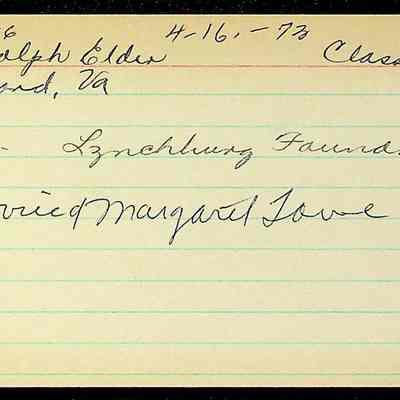 6
olph Elder 4-16.-73 Class
ord, Va
- Lynchburg Found
rried Margaret Lowe